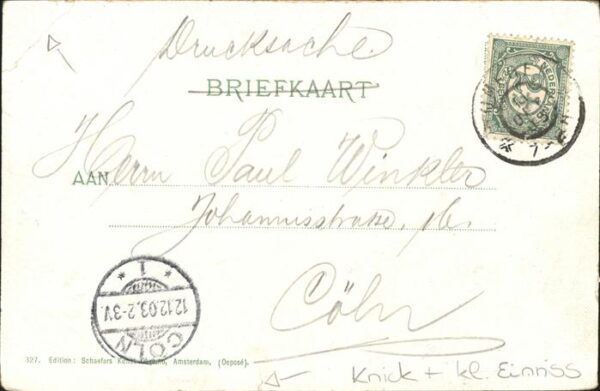 Drucksache.
BRIEFKAART
Herrn Paul Winkler
AAN
Johannisstrasse,
Cöln
NEDERLAND
CÖLN
12.12.03.2-3V.
* 1 *
327. Edition: Schaefers Amsterdam, (Deposé).
Knick + kl. Einriss